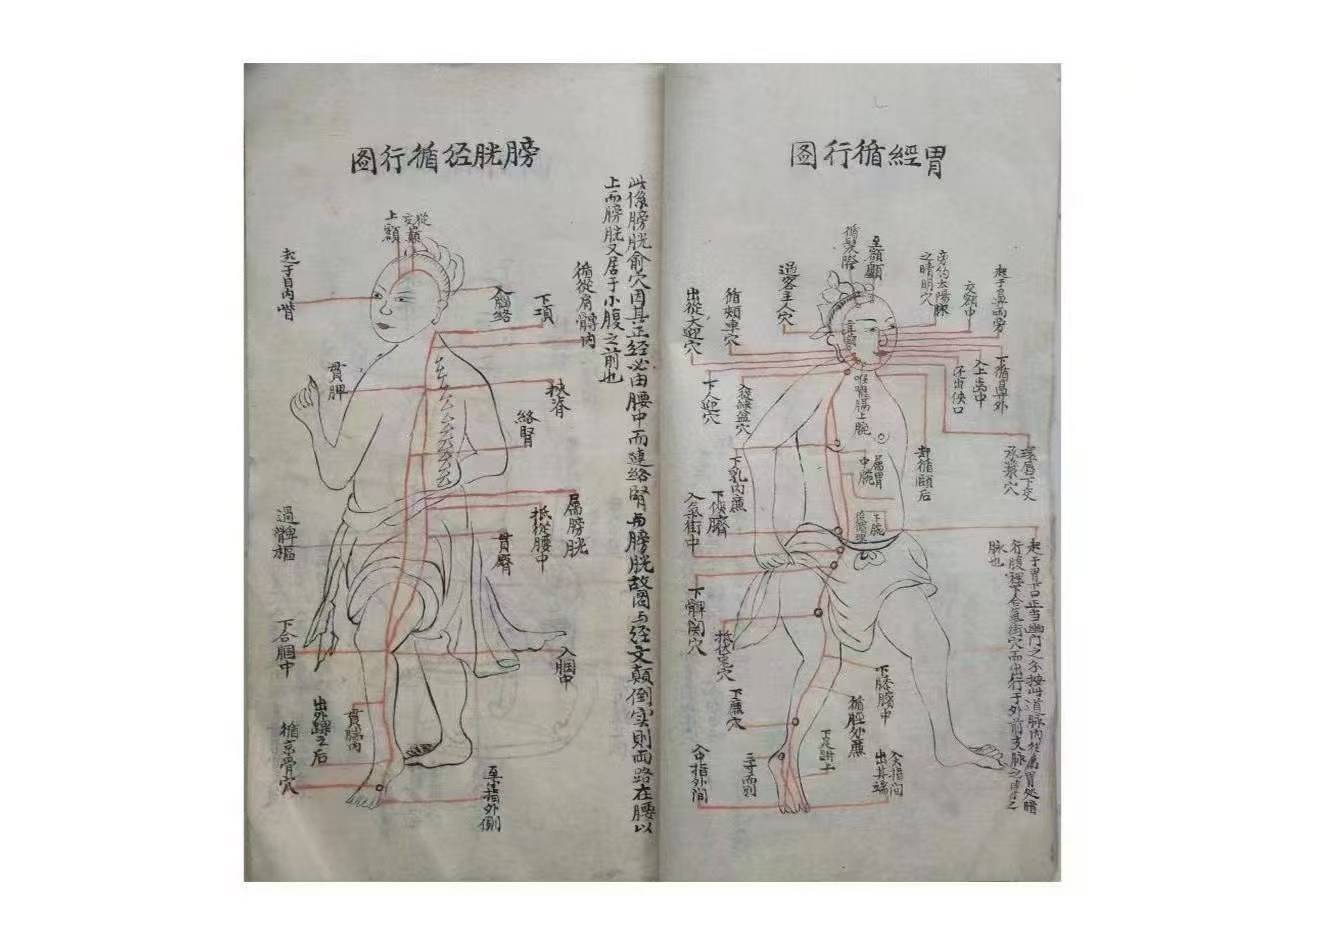 胃經循行圖
起于鼻兩旁
交額中
旁約太陽脉
之睛明穴
至額顱
循髮際
過客主人穴
循頰車穴
出從大迎穴
下循鼻外
入上齒中
还出侠口
環唇下交
承漿穴
却循頤后
下人迎穴
入缺盆穴
喉嚨
上脘
属胃
中脘
下脘
下乳内廉
下侠臍
入气街中
下髀関穴
抵伏兎穴
下廉穴
下膝臏中
循脛外廉
下足跗上
三寸而別
入中指外間
入大指間
出其端
起于胃口正当幽門之
行腹裡下合气街穴而出行于外前支脉之
脉也
膀胱经循行圖
此係膀胱俞穴因其正经必由腰中而連络腎与膀胱故图与经文顛倒实則両路在腰以
上而膀胱又居于小腹之前也
起于目内眥
上額
交巔
從巔
入腦络
下項
循從肩髆内
挟脊
络腎
贯胛
属膀胱
抵從腰中
贯臀
過髀樞
下合腘中
入腘中
贯腨内
出外踝之后
循京骨穴
至小指外側